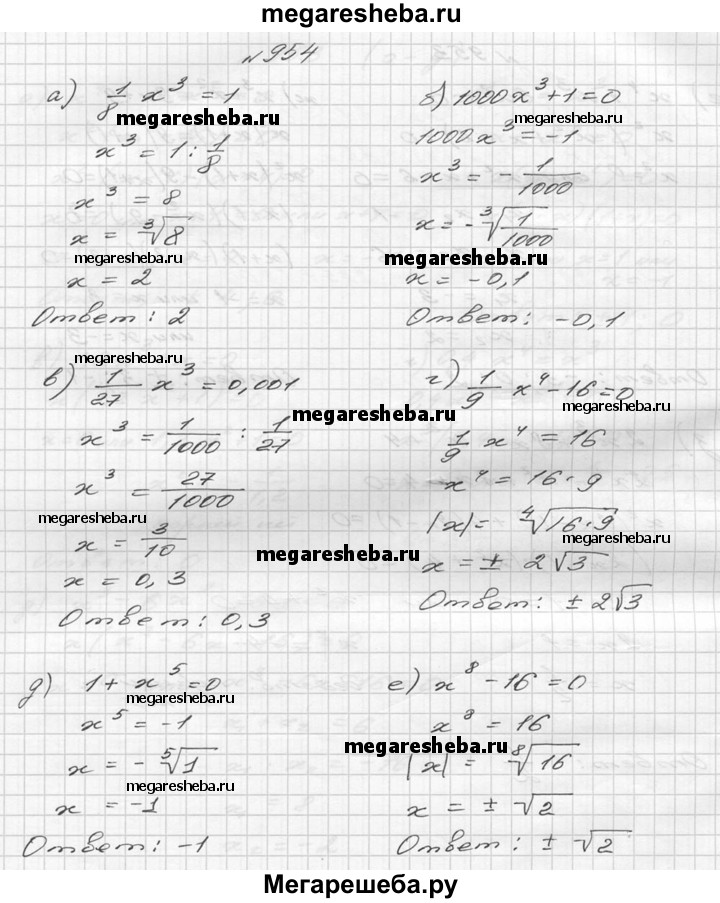 megaresheba.ru
№954
а) 1/8 x³ = 1
megaresheba.ru
x³ = 1 : 1/8
x³ = 8
x = ∛8
megaresheba.ru
x = 2
Ответ: 2
б) 1000x³+1=0
megaresheba.ru
1000x³ = -1
x³ = - 1/1000
x = - ∛(1/1000)
megaresheba.ru
x = -0,1
Ответ: -0,1
megaresheba.ru
в) 1/27 x³ = 0,001
megaresheba.ru
x³ = 1/1000 : 1/27
x³ = 27/1000
megaresheba.ru
x = 3/10
x = 0,3
Ответ: 0,3
г) 1/9 x⁴-16=0
megaresheba.ru
1/9 x⁴ = 16
x⁴ = 16·9
|x| = ∜(16·9)
megaresheba.ru
megaresheba.ru
x = ± 2√3
Ответ: ± 2√3
д) 1+ x⁵=0
megaresheba.ru
x⁵ = -1
x = - ⁵√1
megaresheba.ru
x = -1
Ответ: -1
е) x⁸-16=0
x⁸ = 16
megaresheba.ru
|x| = ⁸√16
x = ± √2
Ответ: ± √2
Мегарешеба.ру